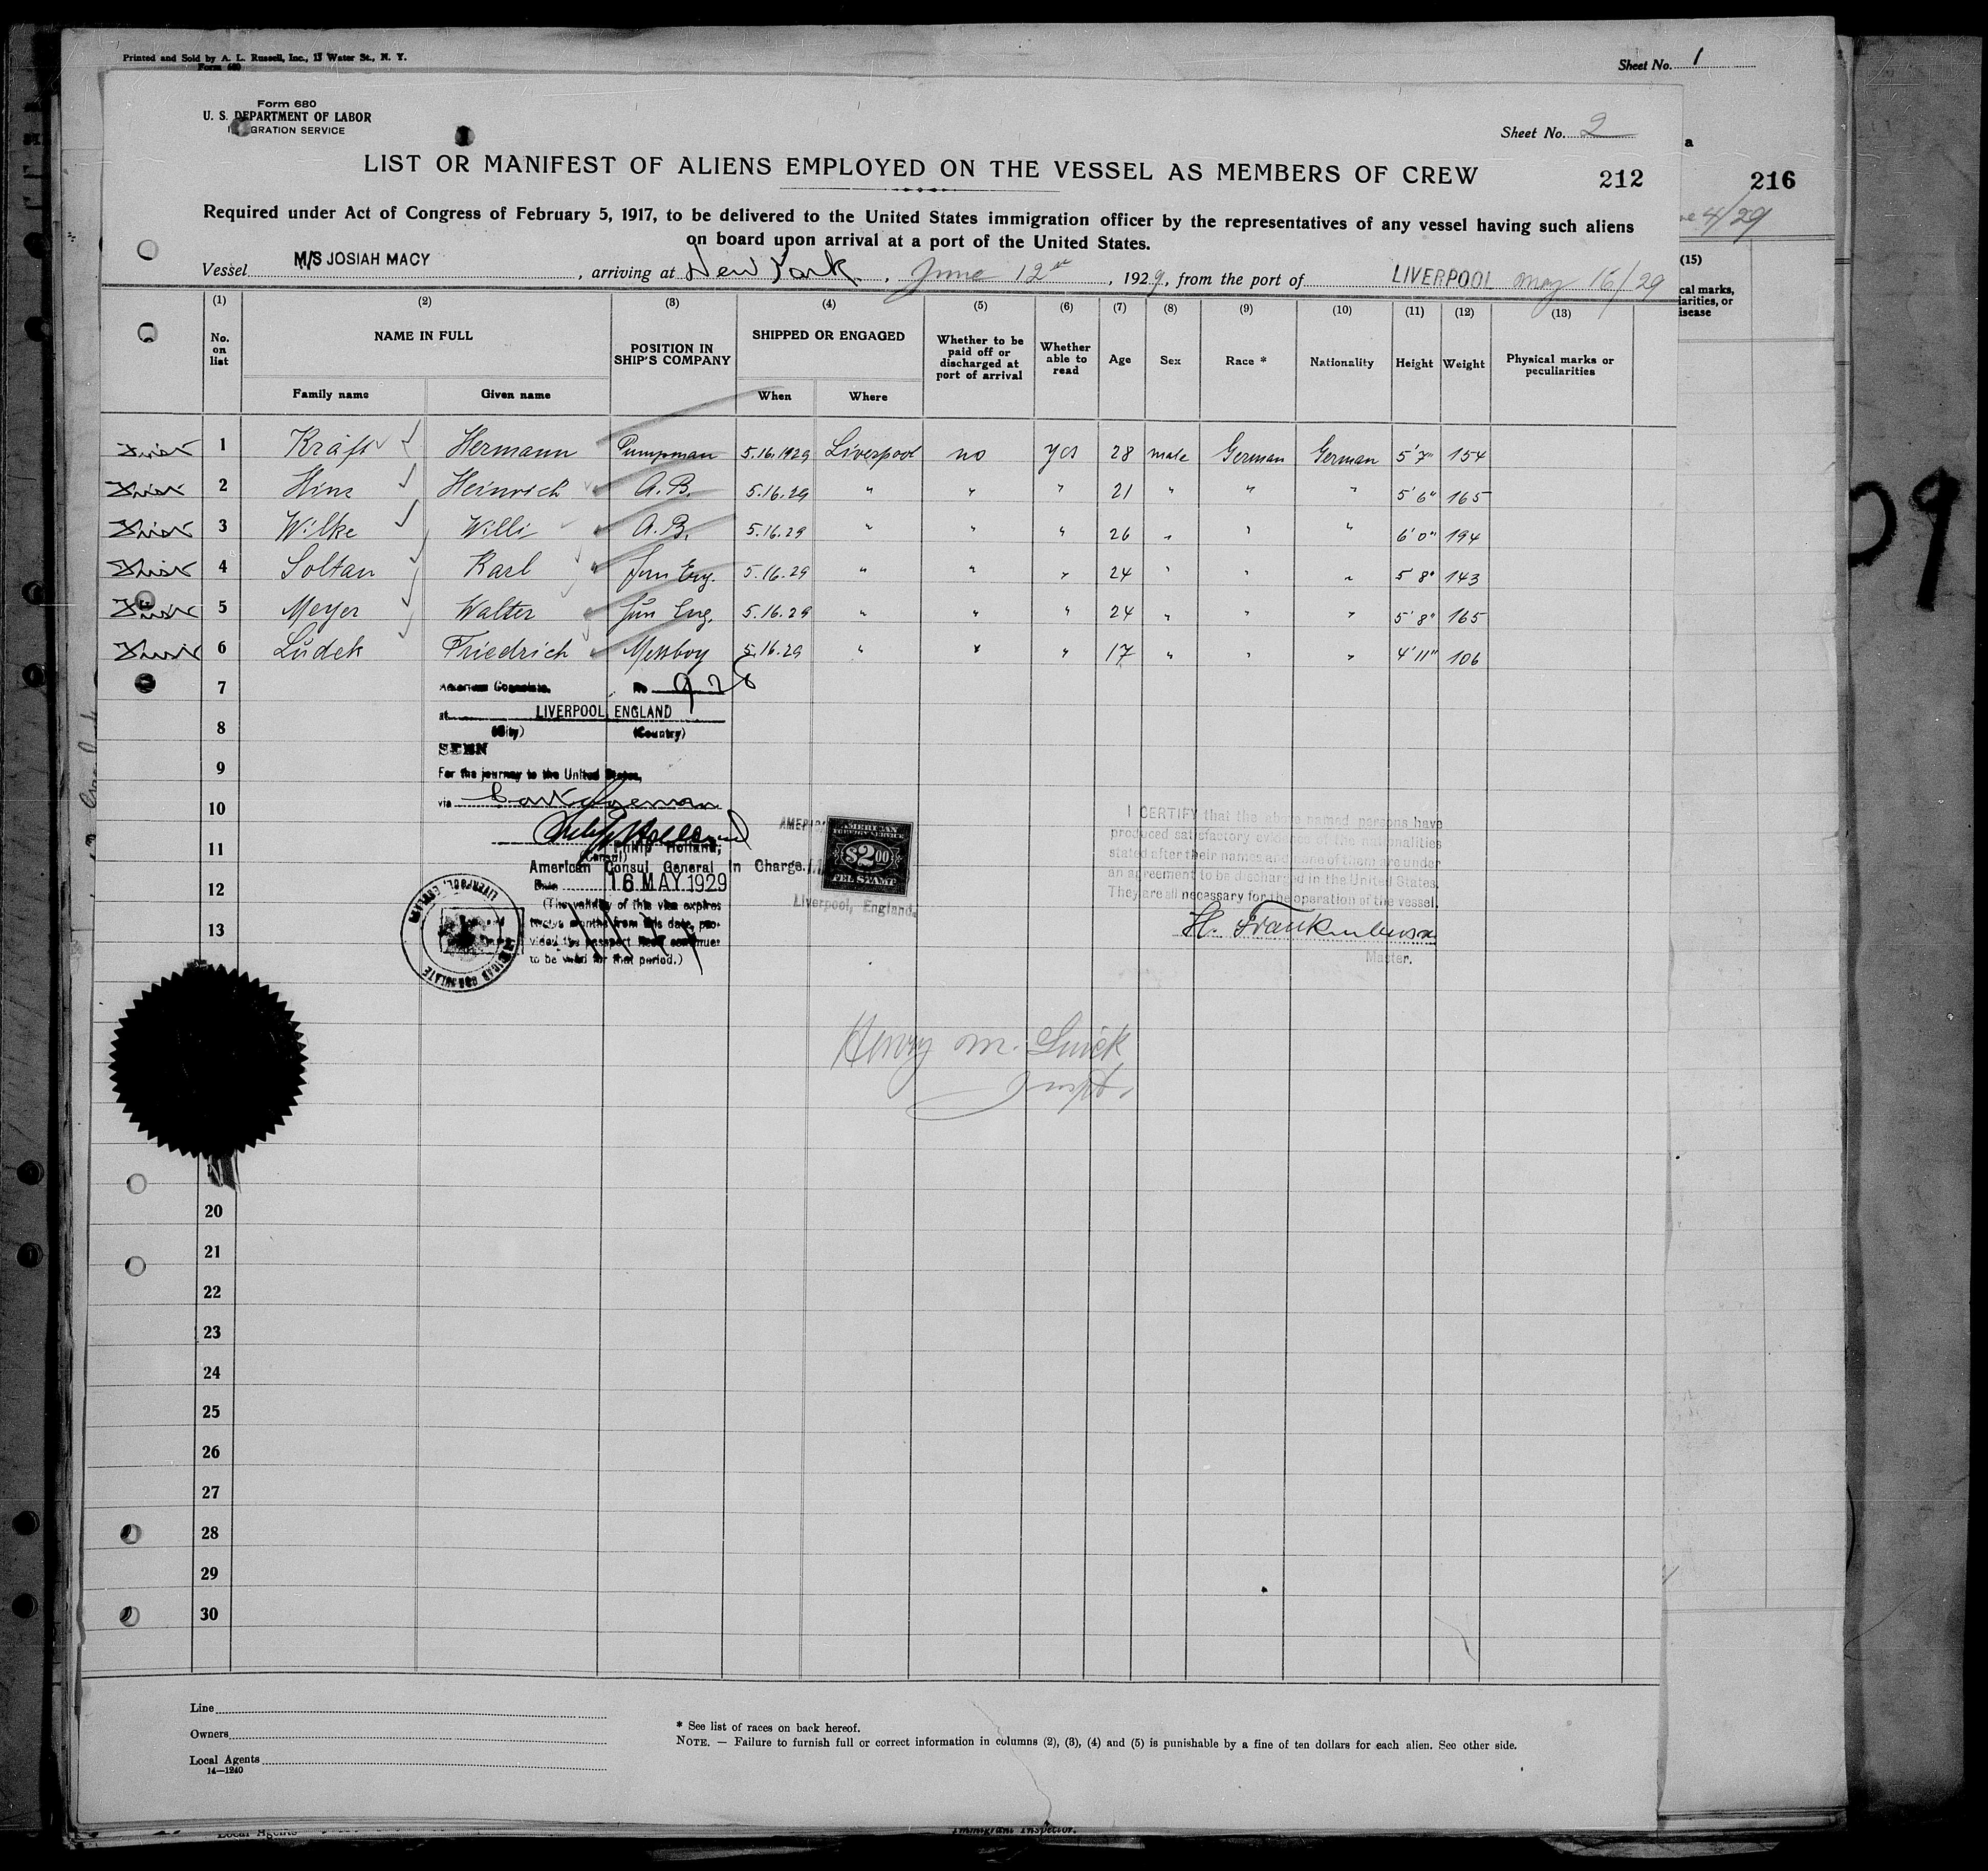 Printed and Sold by A. L. Russell, Inc., 13 Water St., N. Y.
Form 680
Sheet No. 1
Form 680
U. S. DEPARTMENT OF LABOR
IMMIGRATION SERVICE
Sheet No. 2
LIST OR MANIFEST OF ALIENS EMPLOYED ON THE VESSEL AS MEMBERS OF CREW
212
216
Required under Act of Congress of February 5, 1917, to be delivered to the United States immigration officer by the representatives of any vessel having such aliens
on board upon arrival at a port of the United States.
4/29
Vessel M/S JOSIAH MACY, arriving at New York, June 12th, 1929, from the port of LIVERPOOL May 16/29
(1) (2) (3) (4) (5) (6) (7) (8) (9) (10) (11) (12) (13) (15)
No. on list
NAME IN FULL
Family name
Given name
POSITION IN SHIP'S COMPANY
SHIPPED OR ENGAGED
When
Where
Whether to be paid off or discharged at port of arrival
Whether able to read
Age
Sex
Race *
Nationality
Height
Weight
Physical marks or peculiarities
1 Kraft Hermann Pumpman 5.16.1929 Liverpool no yes 28 male German German 5'7" 154
2 Hinz Heinrich A.B. 5.16.29 " " " 21 " " " 5'6" 165
3 Wilke Willi A.B. 5.16.29 " " " 26 " " " 6'0" 194
4 Soltau Karl Jun Eng. 5.16.29 " " " 24 " " " 5 8" 143
5 Meyer Walter Jun Eng. 5.16.29 " " " 24 " " " 5'8" 165
6 Lüdek Friedrich Messboy 5.16.29 " " " 17 " " " 4'11" 106
7
8
9
10
11
12
13
American Consulate. No 928
at LIVERPOOL ENGLAND
(City) (Country)
SEEN
For the journey to the United States,
via
Philip Holland
Philip Holland,
(Consul)
American Consul General in Charge.
Date 16 MAY 1929
(The validity of this visa expires
twelve months from this date, pro-
vided the passport continues
to be valid for that period.)
LIVERPOOL, ENGLAND
AMERICAN CONSULATE
AMERICAN
FOREIGN SERVICE
$2.00
FEE STAMP
Liverpool, England.
I CERTIFY that the above named persons have
produced satisfactory evidence of the nationalities
stated after their names and none of them are under
an agreement to be discharged in the United States.
They are all necessary for the operation of the vessel.
Master.
Henry M.
Inspt.
20
21
22
23
24
25
26
27
28
29
30
Line
Owners
Local Agents
14—1240
* See list of races on back hereof.
NOTE. — Failure to furnish full or correct information in columns (2), (3), (4) and (5) is punishable by a fine of ten dollars for each alien. See other side.
Local Agents
Immigrant Inspector.
09